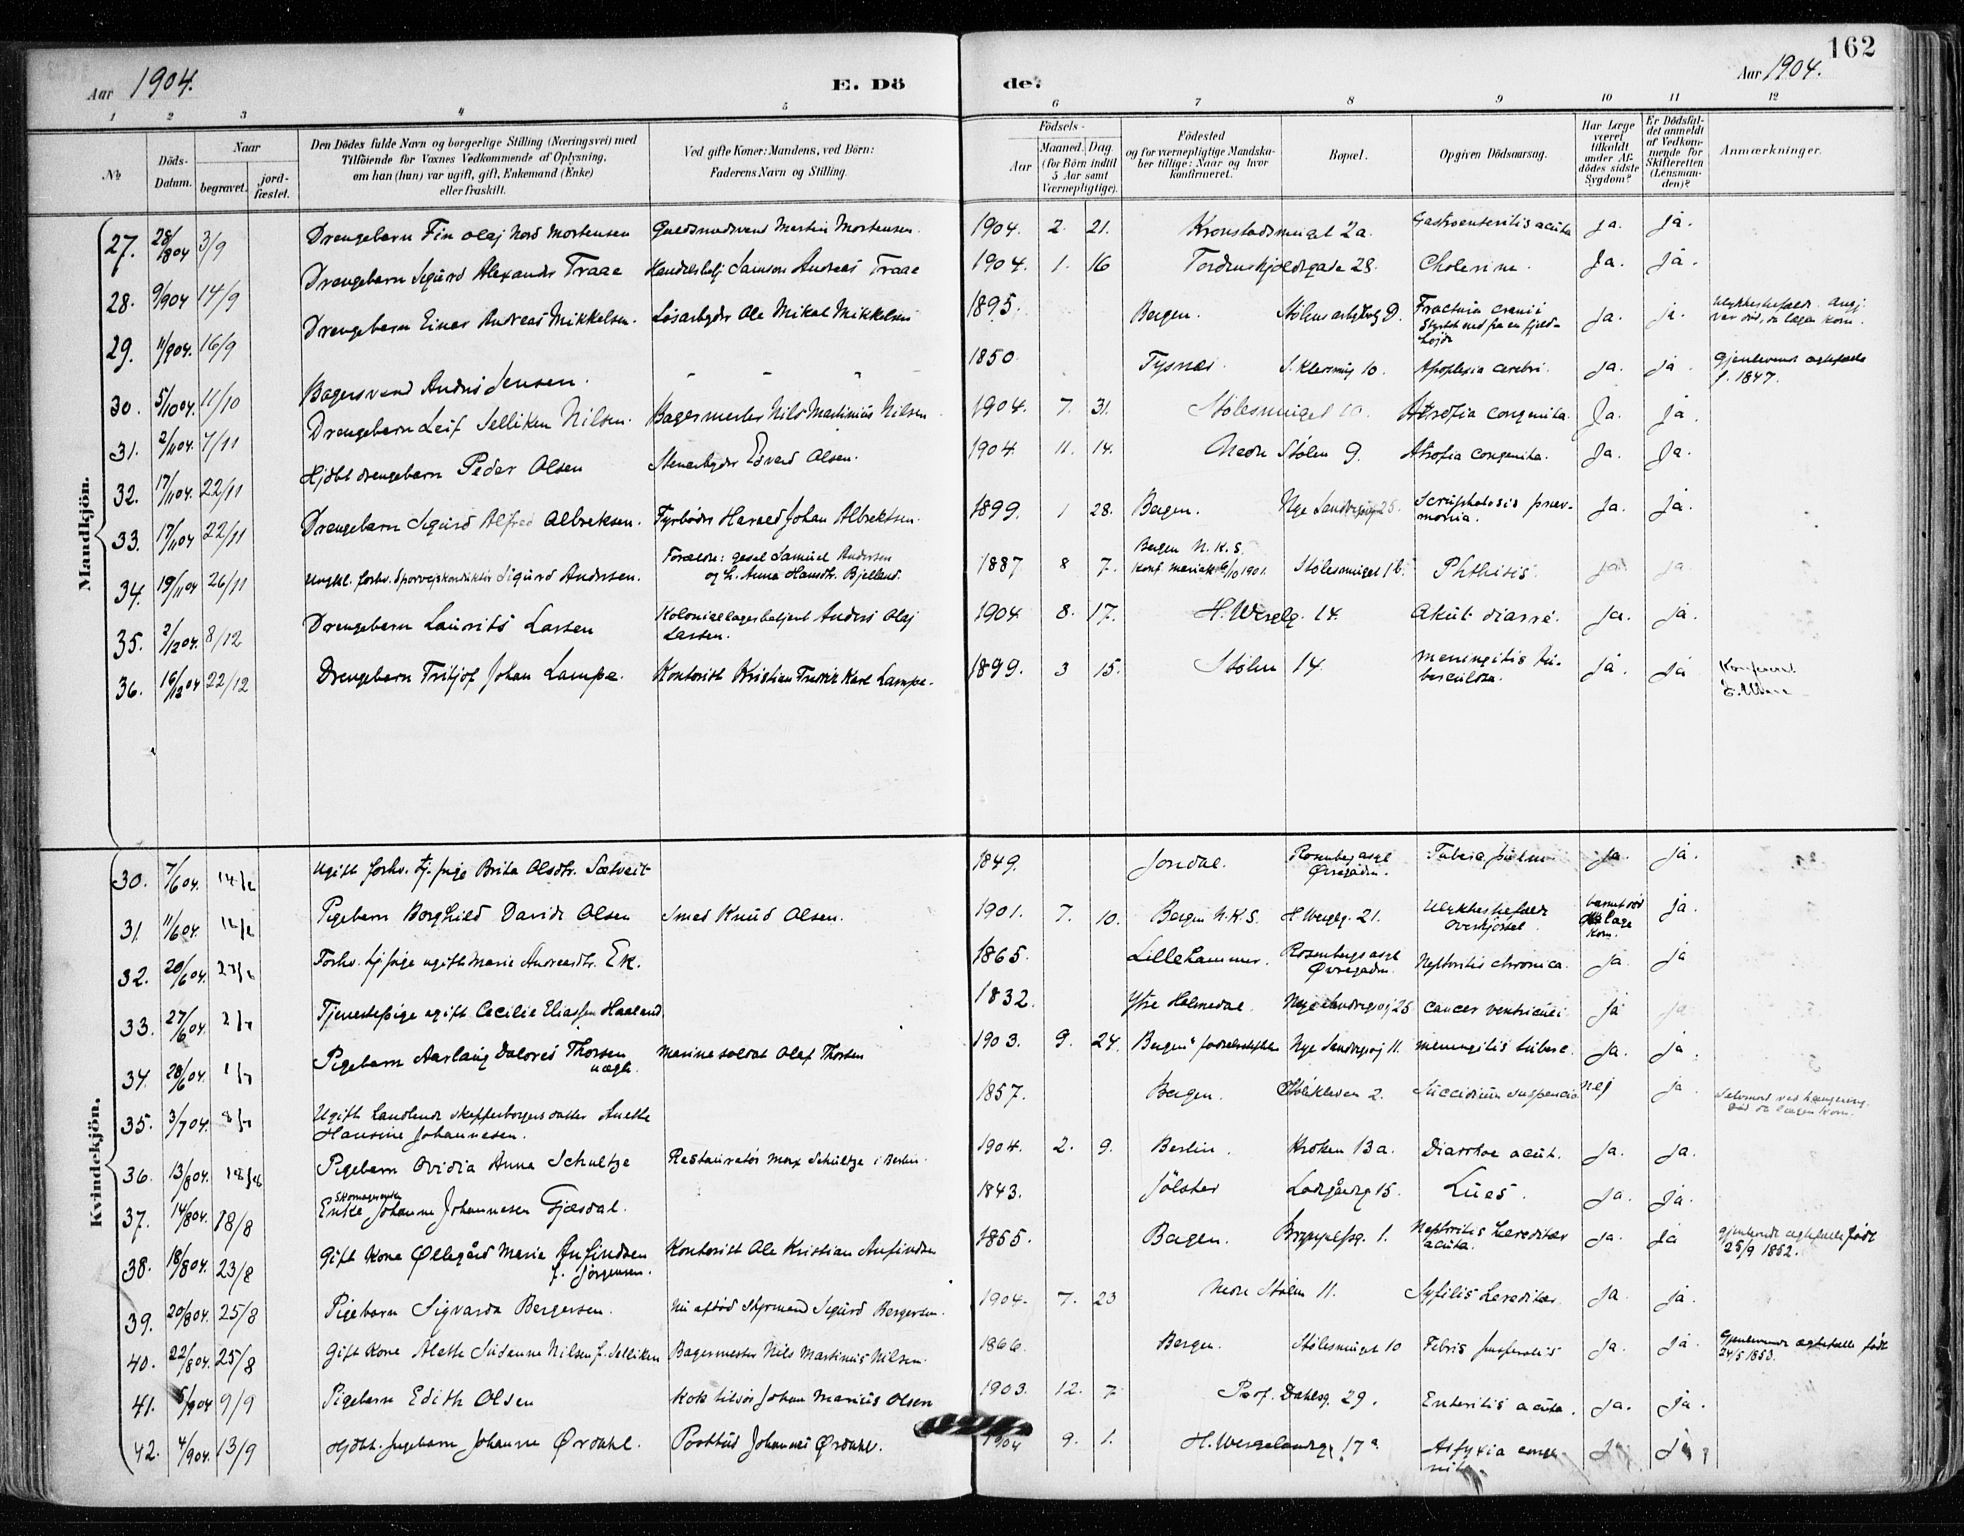 162
Aar 1904. E. Dö de. Aar 1904.
1 2 3 4 5 6 7 8 9 10 11 12
№
Döds-Datum.
Naar
begravet.
jord-fæstet.
Den Dödes fulde Navn og borgerlige Stilling (Næringsvei) med
Tilföiende for Voxnes Vedkommende af Oplysning,
om han (hun) var ugift, gift, Enkemand (Enke)
eller fraskilt.
Ved gifte Koner: Mandens, ved Börn:
Faderens Navn og Stilling.
Födsels-
Aar
Maaned. Dag.
(for Börn indtil
5 Aar samt
Værnepligtige).
Födested
og for værnepligtige Mandska-
ber tillige: Naar og hvor
konfirmeret.
Bopæl.
Opgiven Dödsaarsag.
Har Læge
været
tilkaldt
under Af-
dödes sidste
Sygdom?
Er Dödsfal-
det anmeldt
af Vedkom-
mende for
Skifteretten
(Lensman-
den)?
Anmærkninger.
Mandkjön.
27. 28/8 04 3/9 Drengebarn Fin Olaj Nord Mortensen Guldsmedsvend Martin Mortensen. 1904. 2. 21. Kronstadsmuget 2a. Gastroenteritis acuta ja. ja.
28. 9/9 04 14/9 Drengebarn Sigurd Alexander Traae Handelsbetj Samson Andreas Traae 1904. 1. 16 Tordenskjoldsgade 28. Cholerine. Ja. ja.
29. 11/9 04. 16/9 Drengebarn Einar Andreas Mikkelsen. Løsarbejder Ole Mikal Mikkelsen 1895. Bergen. 9. Fractura cranii
Styrtet ned fra en fjeld-
højde ja. ja. Ulykkestilfælde.
var død, da lægen kom.
30. 5/10 04. 11/10 Bagersvend Anders Jensen. 1850 Tysnæs S. 10. Apoplexia cerebri. ja. ja. Gjenlevende ægtefælle
f. 1847.
31. 2/11 04. 7/11 Drengebarn Leif Selliken Nilsen. Bagermester Nils Martinius Nilsen 1904. 7. 31. Stølesmuget 10. Atrofia congenita. Ja. ja.
32. 17/11 04. 22/11 Hjdbt drengebarn Peder Olsen Stenarbejder Edvard Olsen. 1904 11. 14. Nedre Stølen 9. Atrofia congenita. Ja. Ja.
33. 17/11 04 22/11 Drengebarn Sigurd Alfred Albrektsen. Fyrbøder Harald Johan Albrektsen. 1899. 1 28. Bergen. Nye Sandviksvej 25. Scrophulosis pneu-
monia. Ja. ja.
34. 19/11 04 26/11 Ungkl. forhv. Sporvejskonduktør Sigurd Andersen. Forældre: gesel Samuel Andersen
og h. Anna Hansdtr. Bjelland. 1887 8 7. Bergen N.K.S.
Konf. Mariak 6/10 1901. Stølesmuget 1b. Phthisis. ja. ja.
35. 2/12 04. 8/12 Drengebarn Laurits Lassen Koloniallagerbetjent Anders Olaj
Lassen. 1904 8. 17. H. Wergelg. 14. Akut diarré. Ja. ja.
36. 16/12 04 22/12 Drengebarn Fritjof Johan Lampe. Kontorist Kristian Fredrik Karl Lampe. 1899. 3 15. Stølen 14. Meningitis tu-
berculosa. ja. ja
Kvindekjön.
30. 7/6 04. Ugift forhv. tj. pige Brita Olsdtr. Sætveit 1849. Jondal. Rosenbergasyl
Øvregaden. ja. ja.
31. 11/6 04. Pigebarn Borghild Davida Olsen Smed Knud Olsen. 1901. 7. 10. Bergen N.K.S. H. Wergelg. 21. Ulykkestilfælde
Overkjørsel. barnet død
læge
kom. ja.
32. 20/6 04. Forhv. tj. pige ugift Marie Andreasdtr. Ek. 1865. Lillehammer. Rosenbergs asyl
Øvregaden. Nephritis chronica. ja. ja
33. 27/6 04. Tjenestepige ugift Cecilie Eliassen Haaland 1832. Ytre Holmedal. Nye Sandviksvej 25 Cancer ventriculi. ja ja
34. 28/6 04. Pigebarn Aaslaug Dolores Thorsen
uægte. Marinesoldat Olaf Thorsen 1903. 9. 24. Bergen Nye Sandviksvej 11. meningitis tuberc. ja. ja
35. 3/7 04. Ugift datter Anette
Hansine Johannesen. 1857. Bergen. 2. Suicidium suspensio nej ja. Selvmord ved hængning.
Død da lægen kom.
36. 13/8 04. Pigebarn Ovidia Anna Schultze Restauratør Max Schultze i Berlin. 1904. 2. 9. Berlin. Kroken 13a. Diarrhoe acut. Ja. Ja.
37. 14/8 04. 18/8 Skomager
Enke Johanne Johannesen Gjæsdal. 1843. Jølster Ladegårdsg 15. Lues. ja. ja.
38. 18/8 04. 23/8 Gift Kone Øllegård Marie Anfindsen
f. Jørgensen. Kontorist Ole Kristian Anfindsen 1855. Bergen. 1. Nephritis hereditær
acuta. ja. ja gjenlevende ægtefælle født
25/9 1852.
39. 20/8 04. 25/8 Pigebarn Sigvarda Bergersen. Nu afdød Styrmand Sigurd Bergersen. 1904. 7. 23 Nedre Stølen 11. Syfilis hereditær. ja. ja.
40. 22/8 04. 25/8 Gift Kone Alette Susanne Nilsen f. Selliken Bagermester Nils Martinius Nilsen. 1866. Bergen. Stølesmuget 10 Febris puerperalis Ja. ja. Gjenlevende ægtefælle født
24/5 1853.
41. 5/9 04 9/9 Pigebarn Edith Olsen Johan Marius Olsen 1903. 12. 7 Prof. Dahlsg. 29. Enteritis acuta. ja. ja.
42. 4/9 04. 13/9 Hjdbt. Pigebarn Johanne Ørdahl. Postbud Johannes Ørdahl. 1904 9. 1. H. Wergelandsg. 17a Asfyxia conge-
nita. ja ja